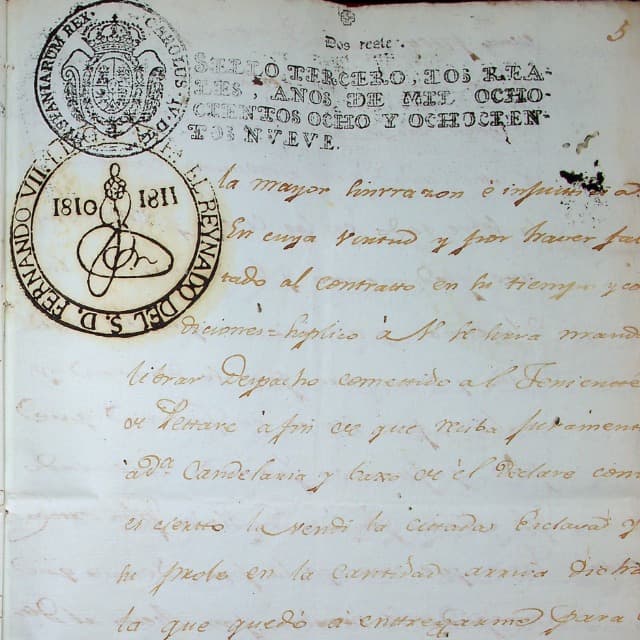 5
Dos reales.
SELLO TERCERO, DOS REA-
LES, AÑOS DE MIL OCHO-
CIENTOS OCHO Y OCHOCIEN-
TOS NUEVE.
CAROLUS IV D
HISPANIARUM REX
1810 1811
FERNANDO VII
EL REYNADO DEL S. D.
la mayor sinrrazon è
En cuya virtud y por haver fal
tado al contratto en su tiempo y co
diciones = Suplico à V. se sirva mand
librar Despacho cometido al Teniente
de Petare à fin de que reciba juramento
à d.ª Candelaria y baxo de èl declare como
es cierto la vendi la citada Esclava y
su prole en la cantidad arriva dicha
la que quedó à entregarme para